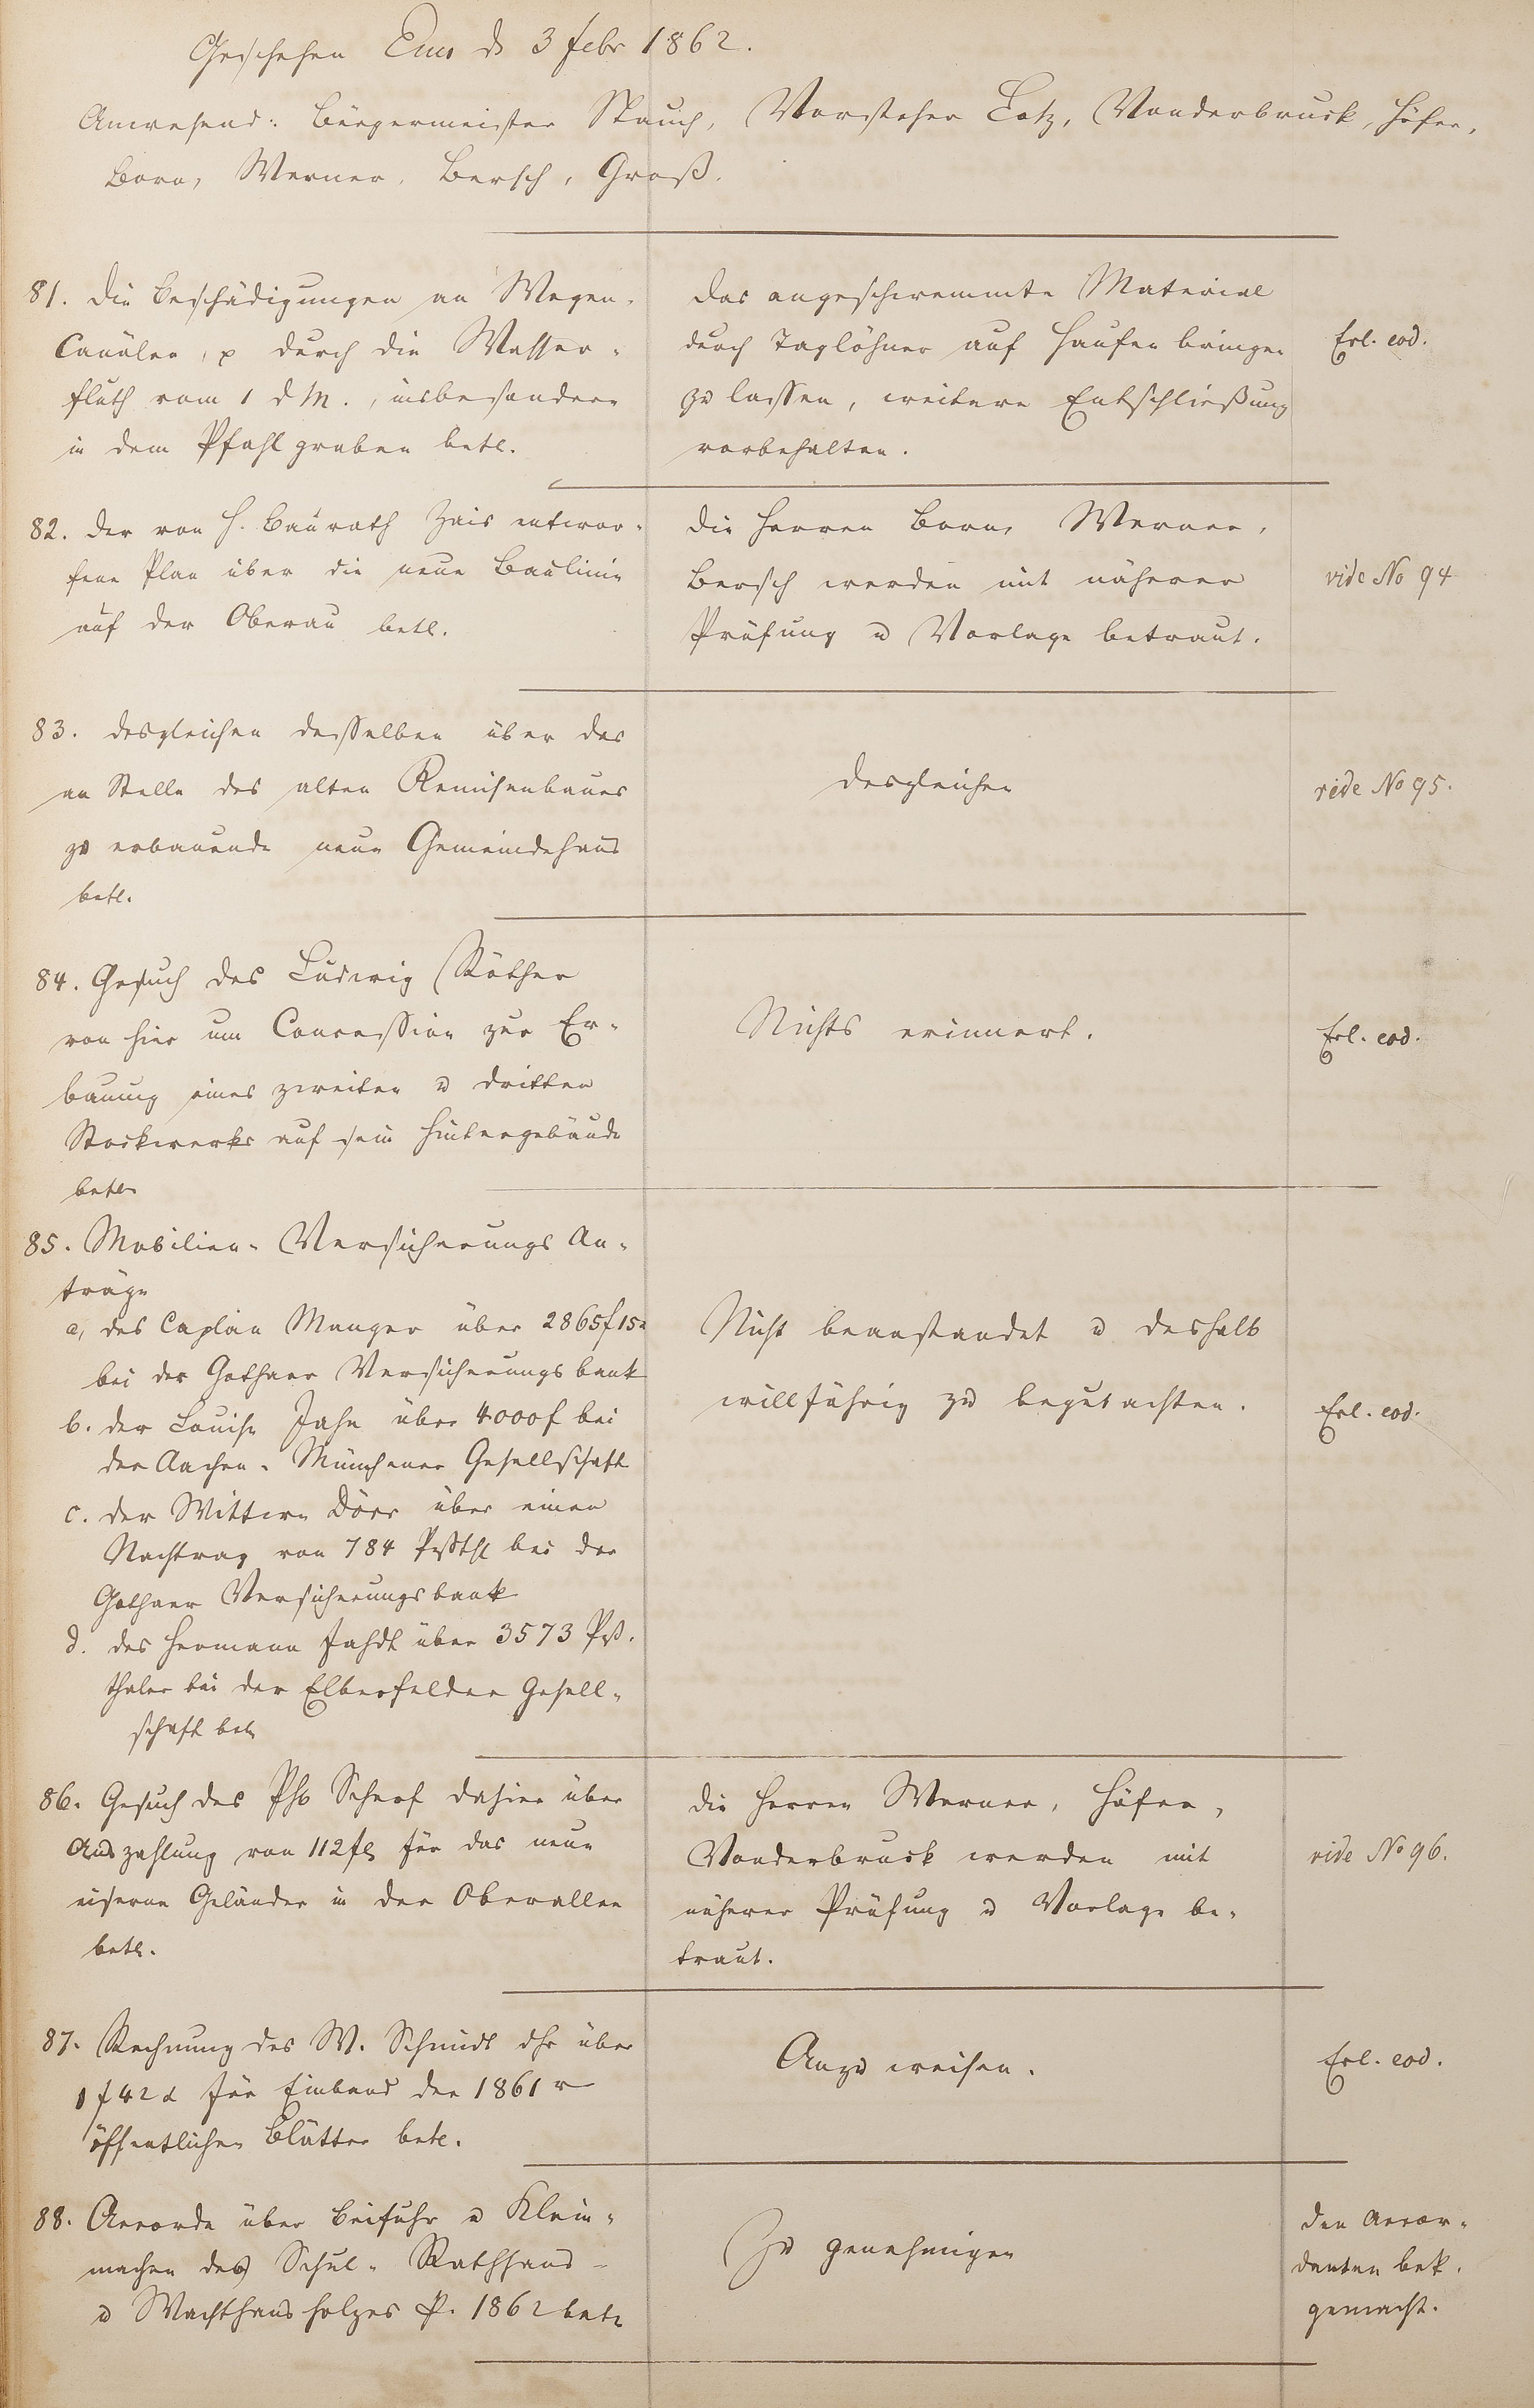 Geschehen Ems d 3 Febr 1862.
Anwesend: Bürgermeister Spauch, Vorsteher Lotz, Vonderbruck, Höfer,
Born, Werner, Bersch, Groß.
81. Die Beschädigungen an Wegen,
Canälen, p durch die Wasser-
fluth vom 1 d M., insbesondere
in dem Pfahlgraben betr.
Das angeschwemmte Material
durch Taglöhner auf Haufen bringen
zu lassen, weitere Entschließung
vorbehalten.
Erl. eod.
82. Der von H. Baurath Zais entwor-
fene Plan über die neue Baulinie
auf der Oberau betr.
Die Herren Born, Werner,
Bersch werden mit näherer
Prüfung u Vorlage betraut.
vide No 94
83. Desgleichen desselben über das
an Stelle des alten Remisenbaues
zu erbauende neue Gemeindehaus
betr.
Desgleichen
vide No 95.
84. Gesuch des Ludwig Käther
von hier um Concession zur Er-
bauung eines zweiten u dritten
Stockwerks auf sein Hintergebäude
betr
Nichts erinnert.
Erl. eod.
85. Mobilien-Versicherungs An-
träge
a, des Caplan Manger über 2865f 15x
bei der Gothaer Versicherungsbank
b. der Louise Jahn über 4000f bei
der Aachen-Münchener Gesellschaft
c. der Wittwe Dörr über einen
Nachtrag von 784 Prßthl bei der
Gothaer Versicherungsbank
d. des Hermann Jahdt über 3573 Prß.
thaler bei der Elberfelder Gesell-
schaft betr
Nicht beanstandet u deshalb
willfährig zu begutachten.
Erl. eod.
86. Gesuch des Phb Scherf dahier über
Auszahlung von 112 fl für das neue
eiserne Geländer in der Oberallee
betr.
Die Herren Werner, Höfer,
Vonderbruck werden mit
näherer Prüfung u Vorlage be-
traut.
vide No 96.
87. Rechnung des W. Schmidt dhr über
1 f 42 x für Einband der 1861 r
öffentlichen Blätter betr.
Anzuweisen.
Erl. eod.
88. Accorde über Beifuhr u Klein-
machen des Schul- Rathhaus-
u Wachthausholzes p. 1862 betr
Zu genehmigen
Den Accor-
danten bek.
gemacht.